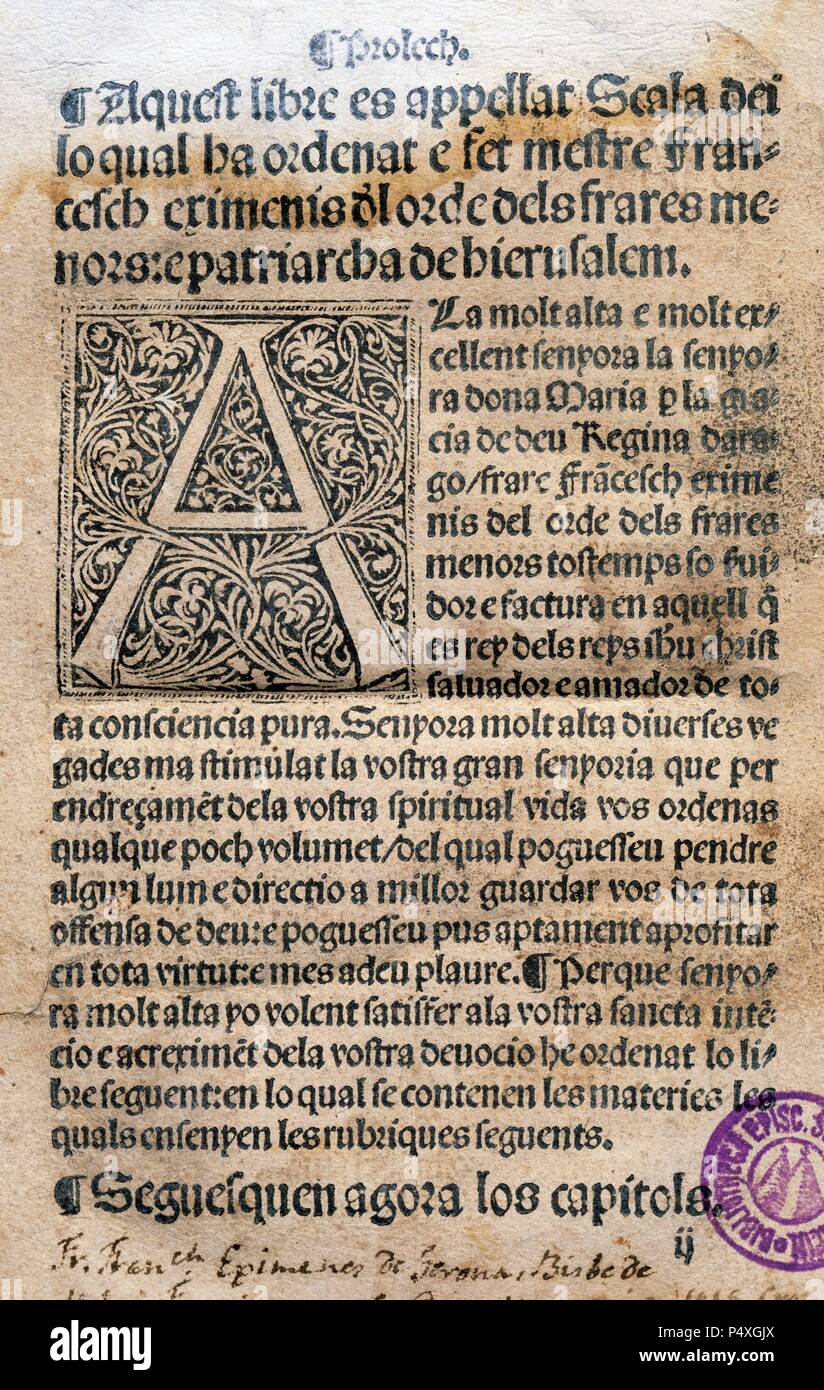 ¶ Prolech.
¶ Aquest libre es appellat Scala dei
lo qual ha ordenat e fet mestre Fran-
cesch eximenis dl orde dels frares me-
nors: e patriarcha de hierusalem.
A La molt alta e molt ex/
cellent senyora la senyo-
ra dona Maria p la gra-
cia de deu Regina dara-
go/frare Frācesch exime
nis del orde dels frares
menors tostemps so hui-
dor e factura en aquell q̄
es rey dels reys ihu christ
saluador e amador de to-
ta consciencia pura. Senyora molt alta diuerses ve
gades ma stimulat la vostra gran senyoria que per
endreçamēt dela vostra spiritual vida vos ordenas
qualque poch volumet/del qual poguesseu pendre
algun lum e directio a millor guardar vos de tota
offensa de deu: e poguesseu pus aptament aprofitar
en tota virtut: e mes a deu plaure. ¶ Perque senyo/
ra molt alta yo volent satisfer ala vostra sancta intē-
cio e acreximēt dela vostra deuocio he ordenat lo li/
bre seguent: en lo qual se contenen les materies les
quals ensenyen les rubriques seguents.
¶ Seguesquen agora los capitols.
ij
Fr. Franch Eximenes de Gerona, Bisbe de
BIBLIOTECA EPISC.
alamy
Image ID: P4XGJX
www.alamy.com